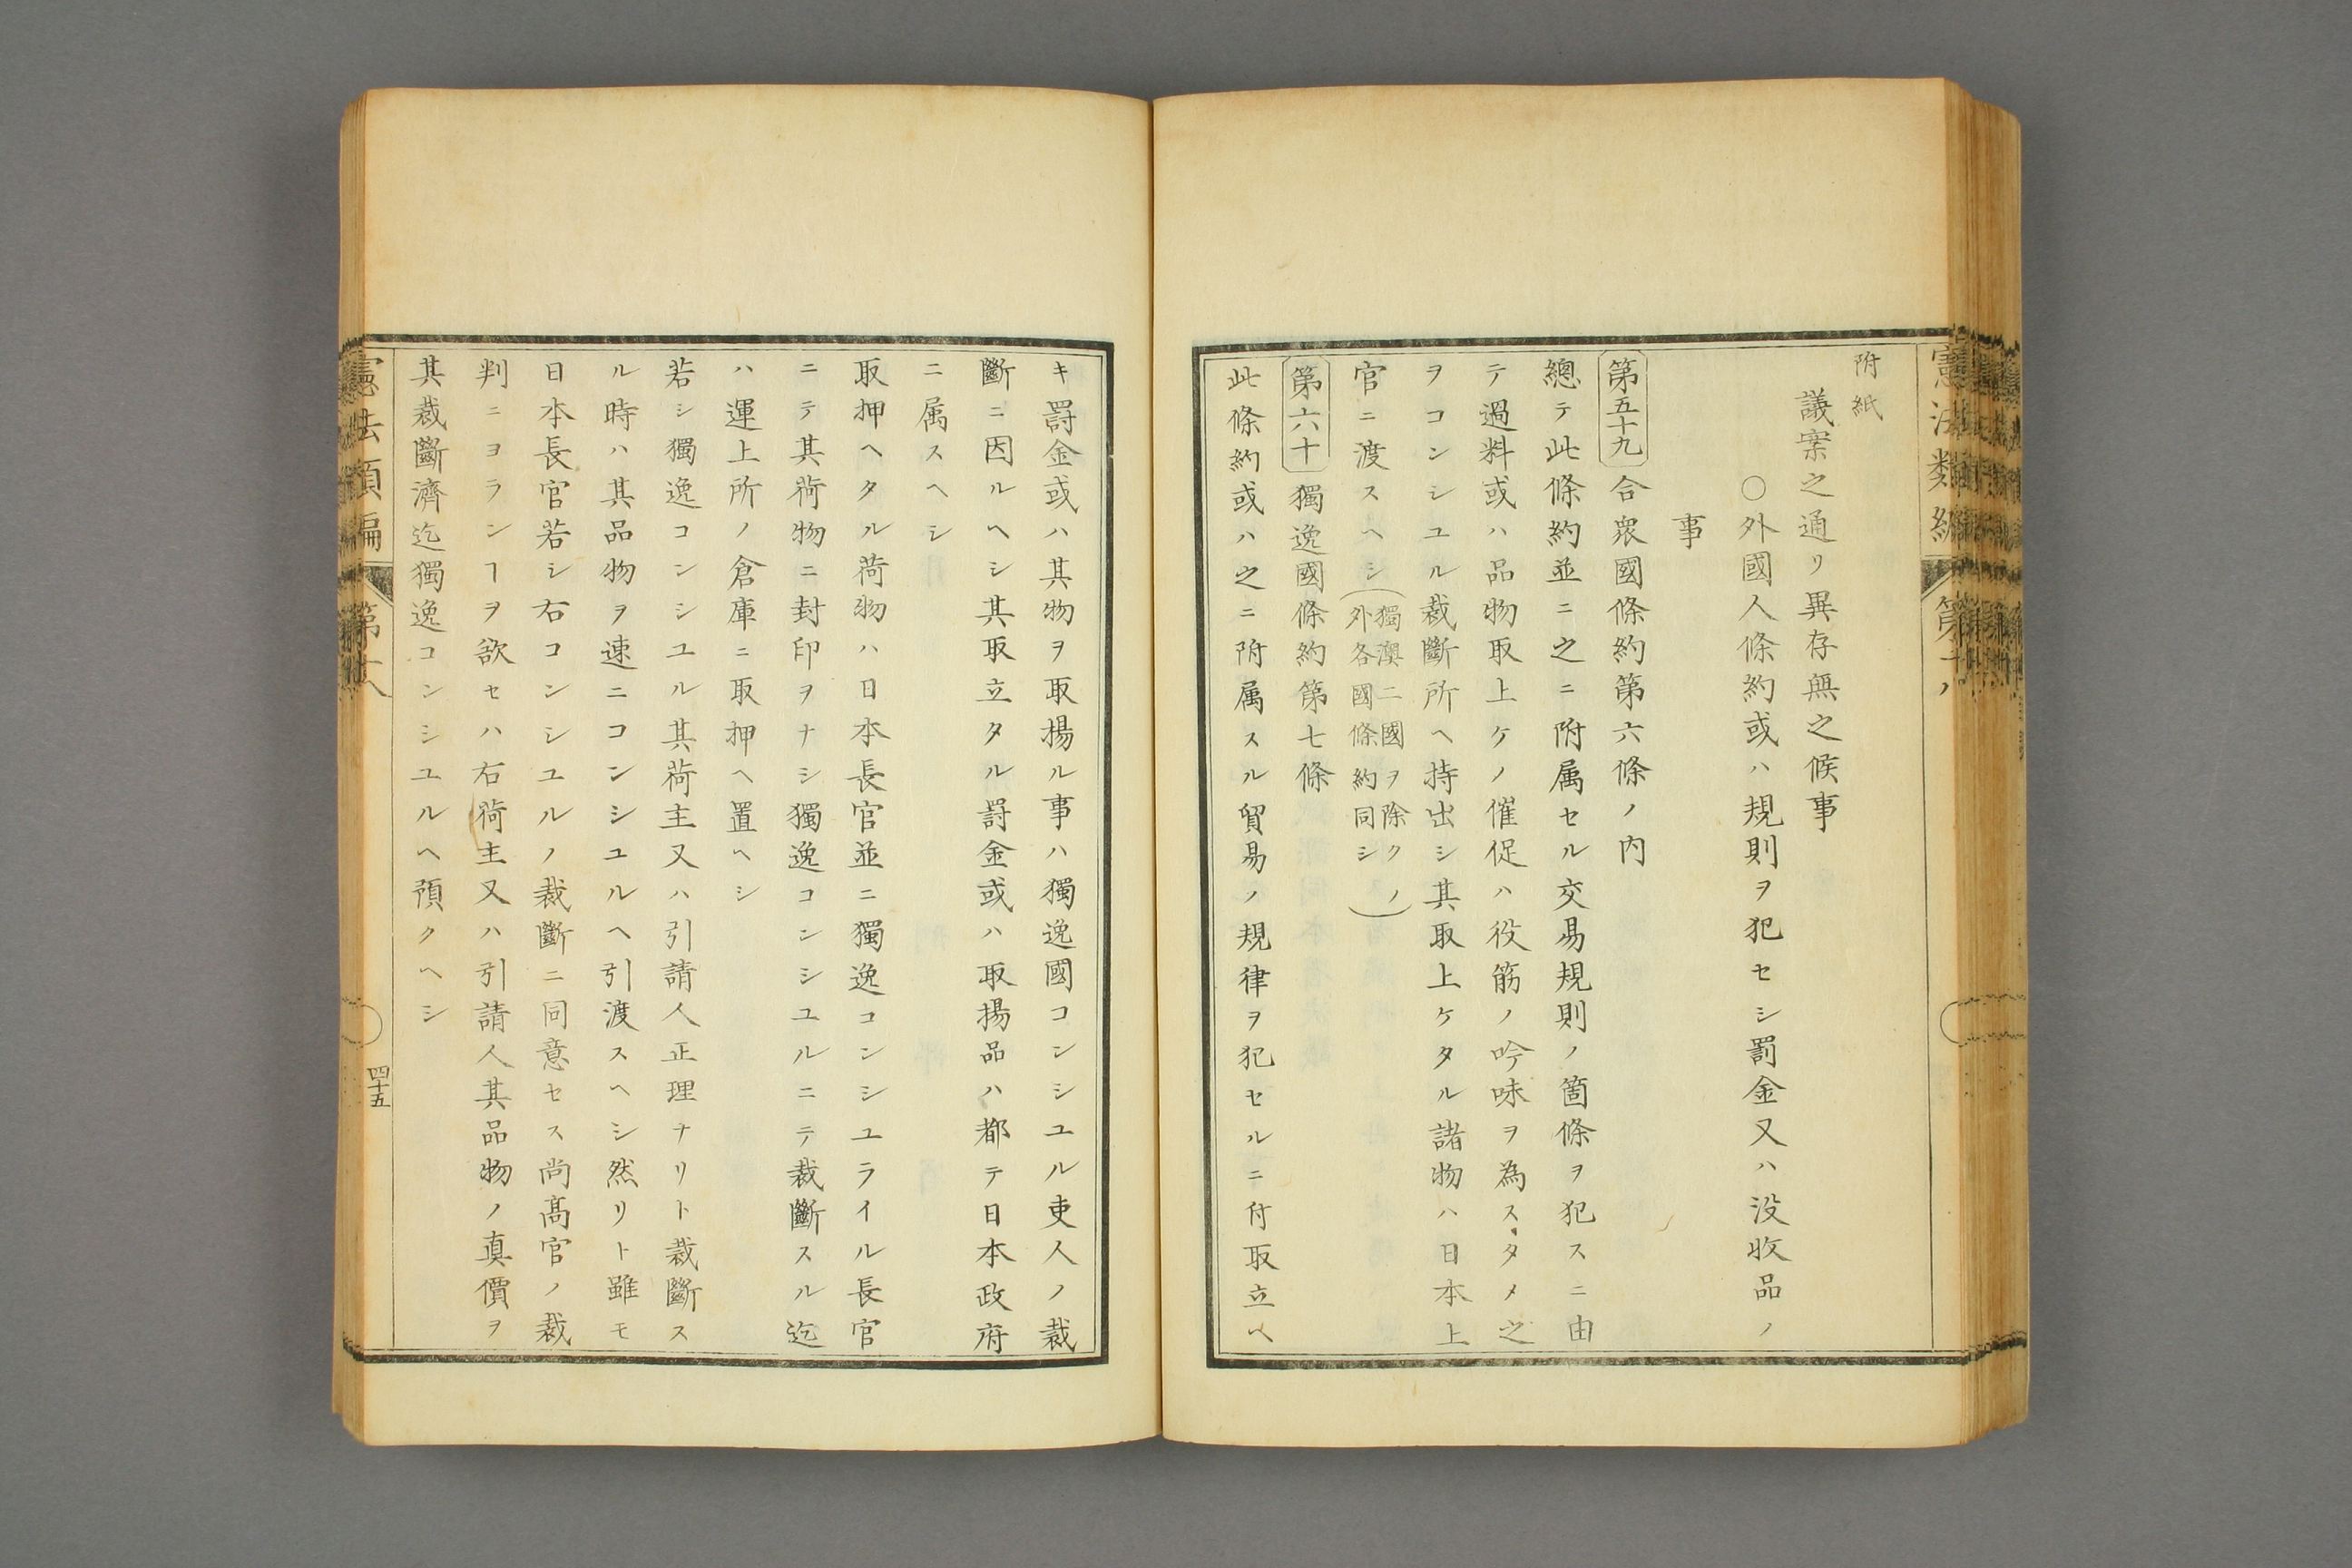 憲法類編
第十八
附紙
議案之通リ異存無之候事
○外國人條約或ハ規則ヲ犯セシ罰金又ハ没收品ノ
事
第五十九 合衆國條約第六條ノ内
總テ此條約並ニ之ニ附属セル交易規則ノ箇條ヲ犯スニ由
テ過料或ハ品物取上ケノ催促ハ役筋ノ吟味ヲ為スタメ之
ヲコンシユル裁斷所ヘ持出シ其取上ケタル諸物ハ日本上
官ニ渡スヘシ(獨澳二國ヲ除クノ
外各國條約同シ)
第六十 獨逸國條約第七條
此條約或ハ之ニ附属スル貿易ノ規律ヲ犯セルニ付取立ヘ
キ罸金或ハ其物ヲ取揚ル事ハ獨逸國コンシユル吏人ノ裁
斷ニ因ルヘシ其取立タル罸金或ハ取揚品ハ都テ日本政府
ニ属スヘシ
取押ヘタル荷物ハ日本長官並ニ獨逸コンシユライル長官
ニテ其荷物ニ封印ヲナシ獨逸コンシユルニテ裁斷スル迄
ハ運上所ノ倉庫ニ取押ヘ置ヘシ
若シ獨逸コンシユル其荷主又ハ引請人正理ナリト裁斷ス
ル時ハ其品物ヲ速ニコンシユルヘ引渡スヘシ然リト雖モ
日本長官若シ右コンシユルノ裁斷ニ同意セス尚髙官ノ裁
判ニヨランヿヲ欲セハ右荷主又ハ引請人其品物ノ眞價ヲ
其裁斷濟迄獨逸コンシユルヘ預クヘシ
憲法類編
第十八
四十五